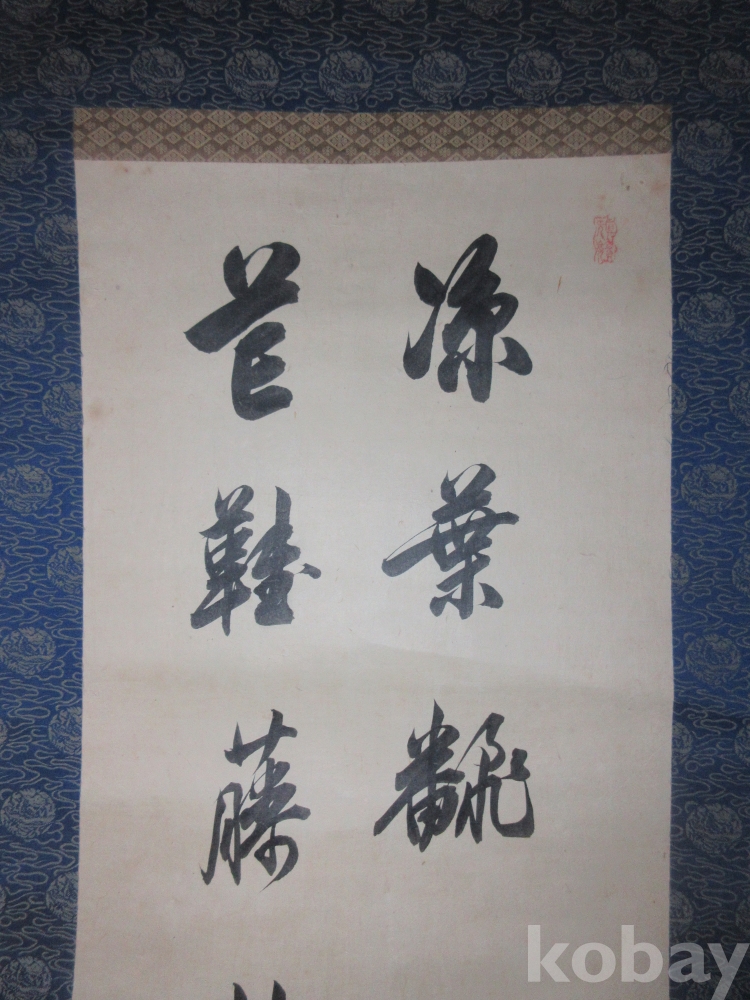 涼葉飜
芒鞋藤
kobay